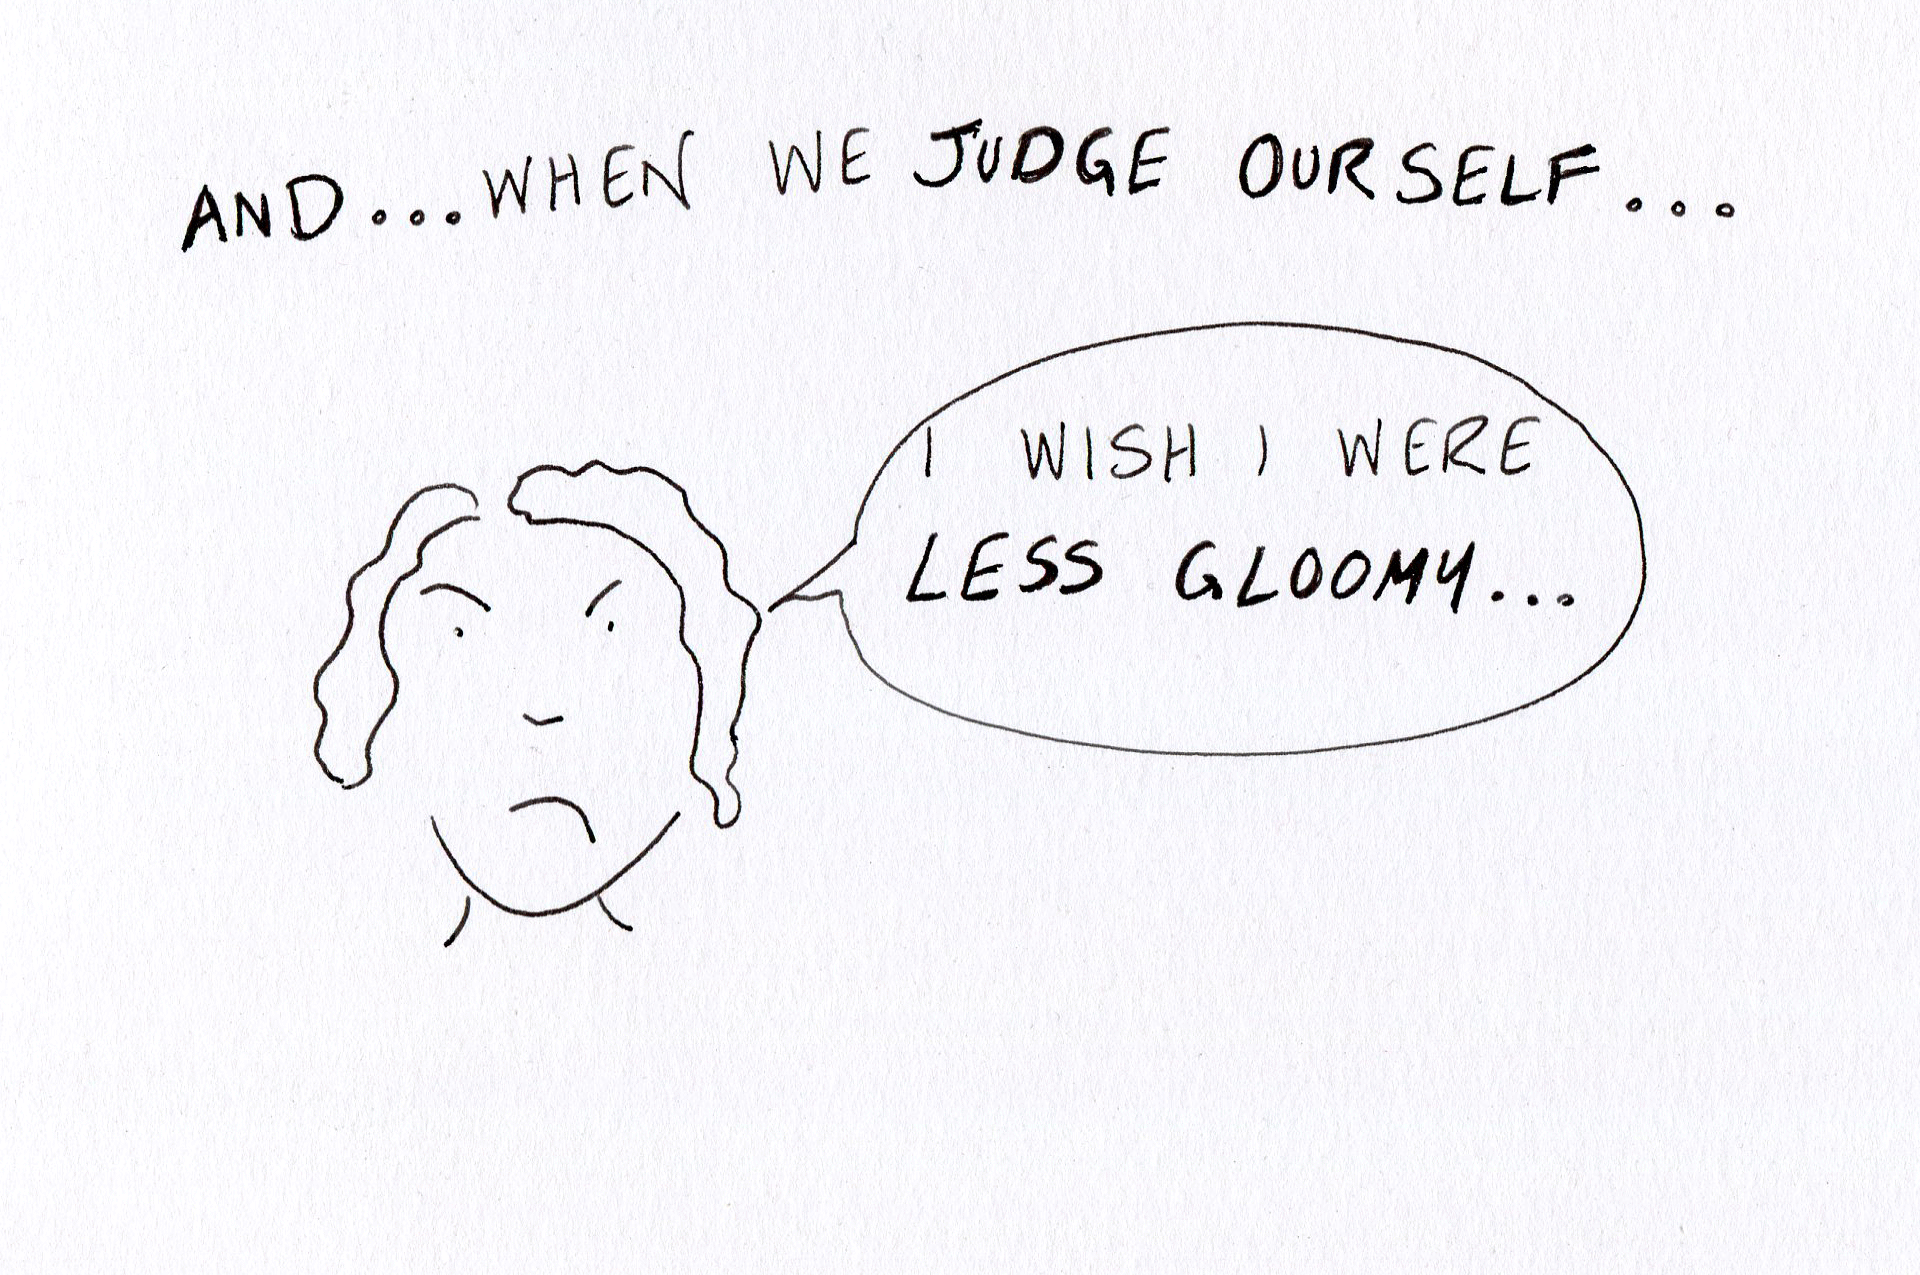 AND...WHEN WE JUDGE OURSELF...
I WISH I WERE
LESS GLOOMY...